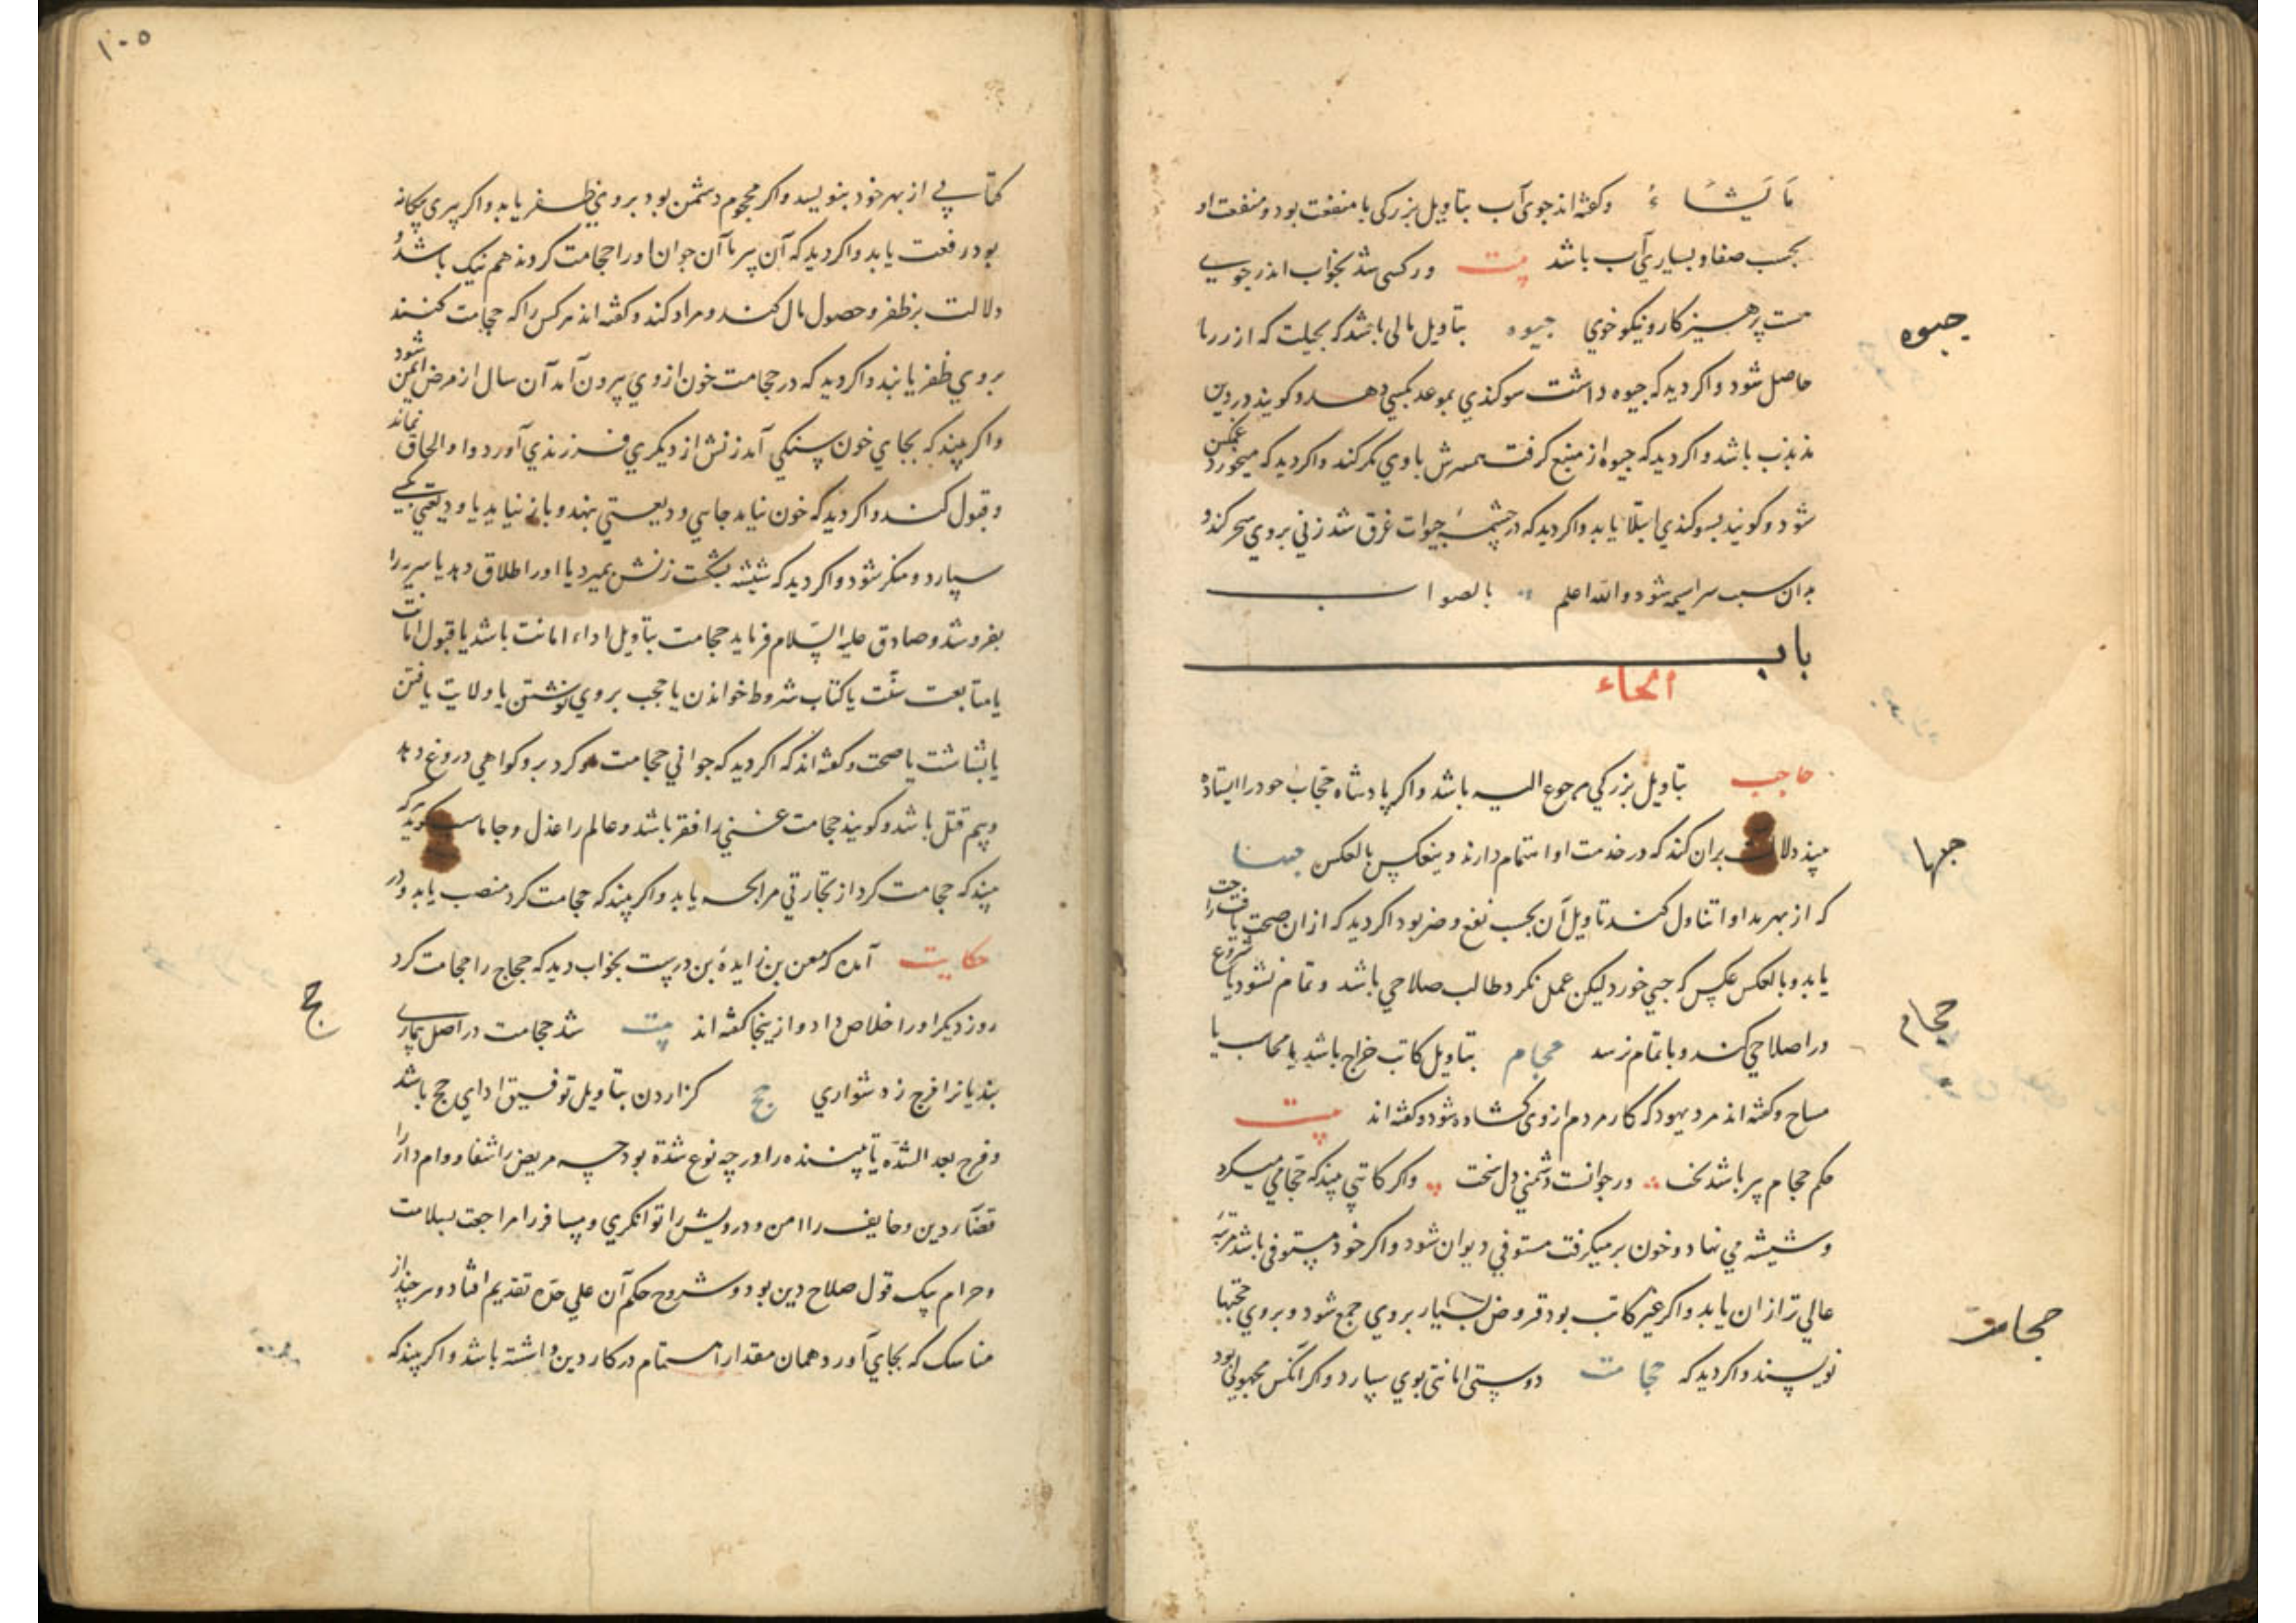 مَا یَشَاءُ وکفته‌اند جوی آب بتاویل بزرکی با منفعت بود و منفعت او
بحسب صفا و بسیاری آب باشد بیت ور کسی شد بخواب اندر جویی
هست پرهیزکار و نیکو خوی جیوه بتاویل مالی باشد که بحیلت که از زر ما
حاصل شود و اکر دید که جیوه داشت سوکندی بموعد بکسی دهد و کویند در دین
مذبذب باشد و اکر دید که جیوه از منبع کرفت همسرش با وی مکر کند و اکر دید که میخورد غمکین
شود و کویند بسوکندی ابتلا یابد و اکر دید که در چشمه جیوات غرق شد زنی بر وی سحر کند و
بدان سبب سراسیمه شود والله اعلم بالصواب
باب
الحاء
حاجب بتاویل بزرکی مرجوع الیه باشد و اکر پادشاه حجاب خود را ایستاده
بیند دلالت بران کند که در خدمت او اهتمام دارند وینعکس بالعکس حبها
که از بهر مداوا تناول کنند تاویل آن بحسب نفع و ضر بود اکر دید که از ان صحت یافت راحت
یابد و بالعکس عکس که حبی خورد لیکن عمل نکرد طالب صلاحی باشد و تمام نشود یا شروع
در اصلاحی کند و با تمام نرسد حجام بتاویل کاتب خراج باشد یا محاسب یا
مساح و کفته‌اند مردی بود که کار مردم از وی کشاده شود و کفته‌اند بیت
حکم حجام پیر باشد بخت ور جوانست دشمنی دل سخت و اکر کاتبی بیند که حجامی میکرد
و شیشه می نهاد و خون بر میکرفت مستوفی دیوان شود و اکر خود مستوفی باشد مرتبه
عالی تر از ان یابد و اکر غیر کاتب بود قروض بسیار بر وی جمع شود و بر وی حجتها
نویسند و اکر دید که حجامت دوستی امانتی بوی سپارد و اکر آنکس مجهولی بود
جیوه
حبها
حجام
حجامت
۱۰۵
کتابی از بهر خود بنویسد و اکر محجوم دشمن بود بر وی ظفر یابد و اکر پیری بیکانه
بود رفعت یابد و اکر دید که آن پیر یا آن جوان او را حجامت کردند هم نیک باشد و
دلالت بر ظفر و حصول مال کند و مراد کند و کفته‌اند هر کس را که حجامت کنند
بر وی ظفر یابند و اکر دید که در حجامت خون از وی بیرون آمد آن سال از مرض ایمن شود
و اکر بیند که بجای خون سنکی آمد زنش از دیکری فرزندی آورد و او الحاق نماند
و قبول کند و اکر دید که خون نیامد جایی ودیعتی نهد و باز نیابد یا ودیعتی بکسی
سپارد و منکر شود و اکر دید که شیشه بشکست زنش بمیرد یا او را طلاق دهد یا سریر را
بفروشد و صادق علیه السّلام فرماید حجامت بتاویل اداء امانت باشد یا قبول امانت
یا متابعت سنّت یا کتاب شروط خواندن یا حجت بر وی نوشتن یا ولایت یافتن
یا بشاشت یا صحت و کفته‌اند که اکر دید که جوانی حجامت او کرد بر و کواهی دروغ دهد
و بیم قتل باشد و کویند حجامت غنی را فقر باشد و عالم را عذل و جاماسب کوید که
بیند که حجامت کرد از تجارتی مرابحه یابد و اکر بیند که حجامت کرد منصب یابد و در
حکایت آمده که معن بن زایدهٔ بن درست بخواب دید که حجاج را حجامت کرد
روز دیکر او را خلاص داد و از ینجا کفته‌اند بیت شد حجامت در اصل بیماری
بندیانرا فرج ز دشواری حج کزاردن بتاویل توفیق ادای حج باشد
و فرج بعد الشدّه تا بیننده را در چه نوع شدة بود چه مریض را شفا و وام دار را
قضاء دین و خایف را امن و درویش را توانکری و مسافر را مراجعت بسلامت
و حرام بیک قول صلاح دین بود و شروح حکم آن علی حده تقدیم افتاد و هر چند از
مناسک که بجای آورد همان مقدار اهتمام در کار دین داشته باشد و اکر بیند که
حج